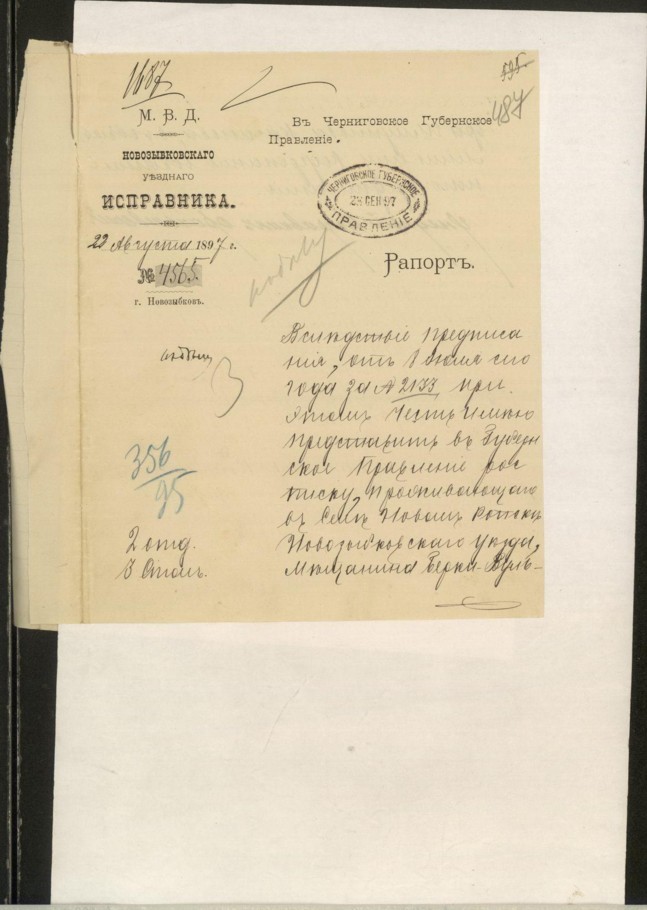 1687
595.
487
М. В. Д.
НОВОЗЫБКОВСКАГО
УѢЗДНАГО
ИСПРАВНИКА.
22 Августа 1897 г.
№ 4565
г. Новозыбков.
Въ Черниговское Губернское
Правленіе.
ЧЕРНИГОВСКОЕ ГУБЕРНСКОЕ
23 СЕН 97
ПРАВЛЕНІЕ
Рапортъ.
Вслѣдствіе предписа
нія, отъ 1 Іюля сего
года за № 2133, при
этомъ честь имѣю
представить въ Губерн
ское Правленіе рос
писку, проживающаго
въ селѣ Новомъ Ропскѣ
Новозыбковскаго уѣзда,
мѣщанина Берки-Вуль-
356
95
2 отд.
3 Столъ.